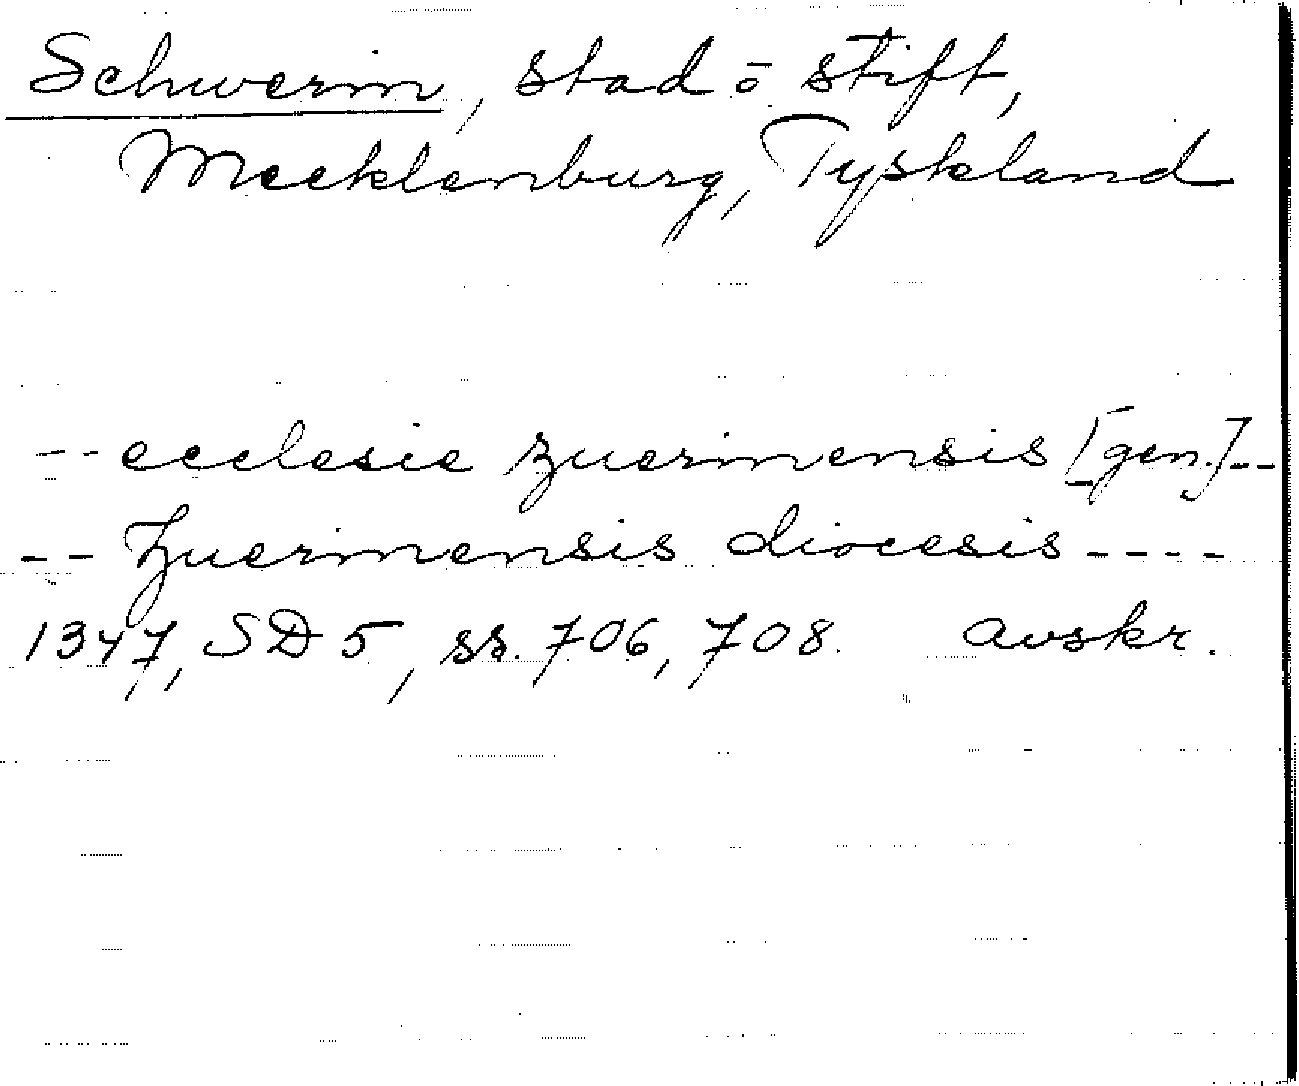 Schwerin, stad o stift,
Mecklenburg, Tyskland
-- ecclesie zuerinensis [gen.]--
-- Zuerinensis diocesis ----
1347, SD 5, ss. 706, 708. avskr.